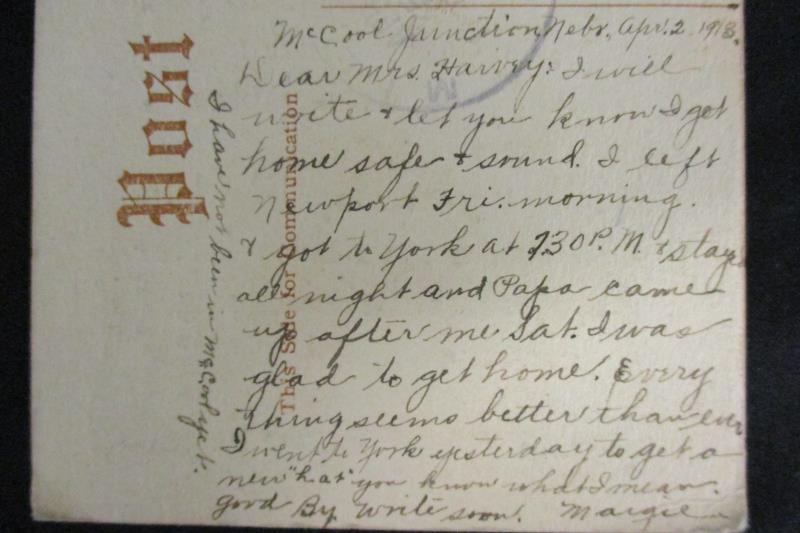 McCool Junction, Nebr., Apr. 2 1913.
Dear Mrs. Harvey: I will
write & let you know I get
home safe & sound. I left
Newport Fri. morning.
& got to York at 730 P.M. & stayed
all night and Papa came
up after me Sat. I was
glad to get home. Every
thing seems better than ever
I went to York yesterday to get a
new "hat" you know what I mean.
good By write soon. Margie
I have not been in McCool yet.
Post
This Side for Communication